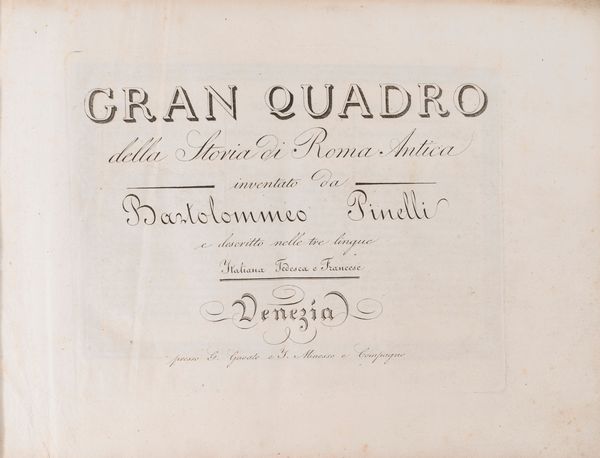 GRAN QUADRO
della Storia di Roma Antica
inventato da
Bartolommeo Pinelli
e descritto nelle tre lingue
Italiana Tedesca e Francese
Venezia
presso G. Gavole e I. Minesso e Compagno